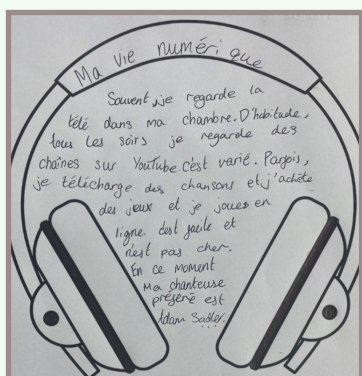 Ma vie numérique
Souvent, je regarde la
télé dans ma chambre. D'habitude,
tous les soirs je regarde des
chaînes sur YouTube c'est varié. Parfois,
je télécharge des chansons et j'achète
des jeux et je joues en
ligne. c'est facile et
n'est pas cher.
En ce moment
Ma chanteuse
préféré est
Adam Sadler.